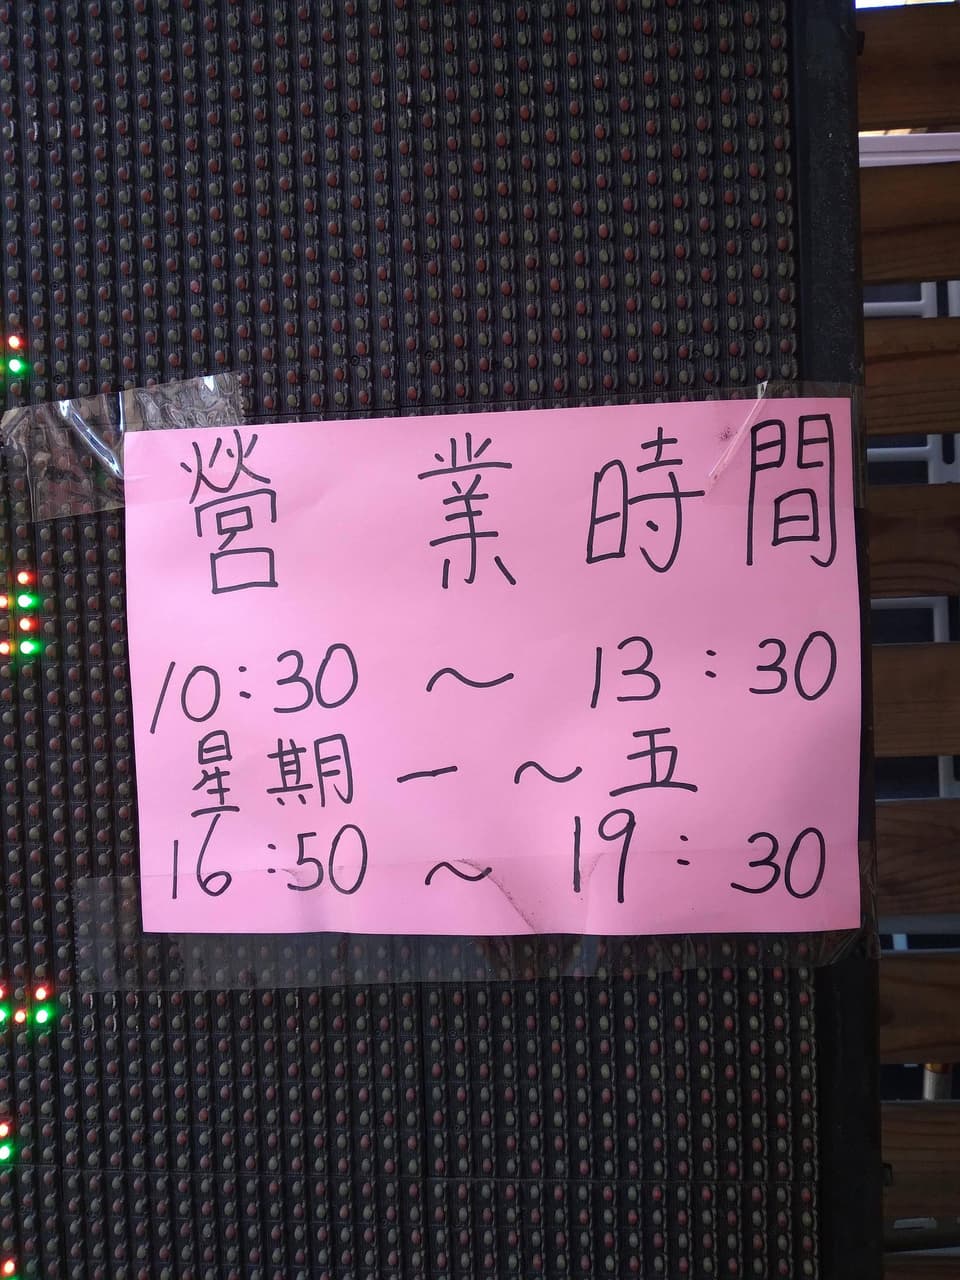 營業時間
10:30 ~ 13:30
星期一~五
16:50 ~ 19:30